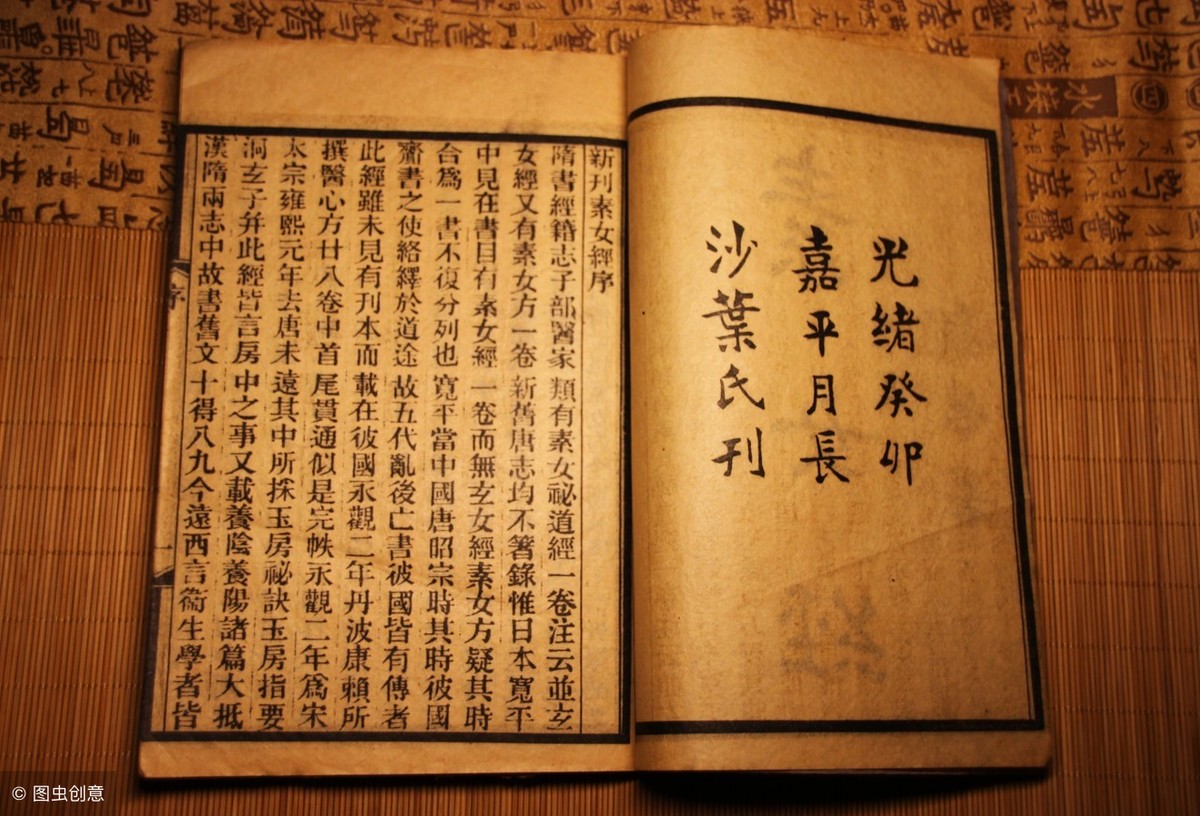 光緒癸卯
嘉平月長
沙葉氏刊
新刊素女經序
隋書經籍志子部醫家類有素女祕道經一卷注云並玄
女經又有素女方一卷新舊唐志均不箸錄惟日本寬平
中見在書目有素女經一卷而無玄女經素女方疑其時
合爲一書不復分列也寬平當中國唐昭宗時其時彼國
齎書之使絡繹於道途故五代亂後亡書彼國皆有傳者
此經雖未見有刊本而載在彼國永觀二年丹波康賴所
撰醫心方廿八卷中首尾貫通似是完帙永觀二年爲宋
太宗雍熙元年去唐未遠其中所採玉房祕訣玉房指要
洞玄子并此經皆言房中之事又載養陰養陽諸篇大抵
漢隋兩志中故書舊文十得八九今遠西言衞生學者皆
序
一
© 图虫创意